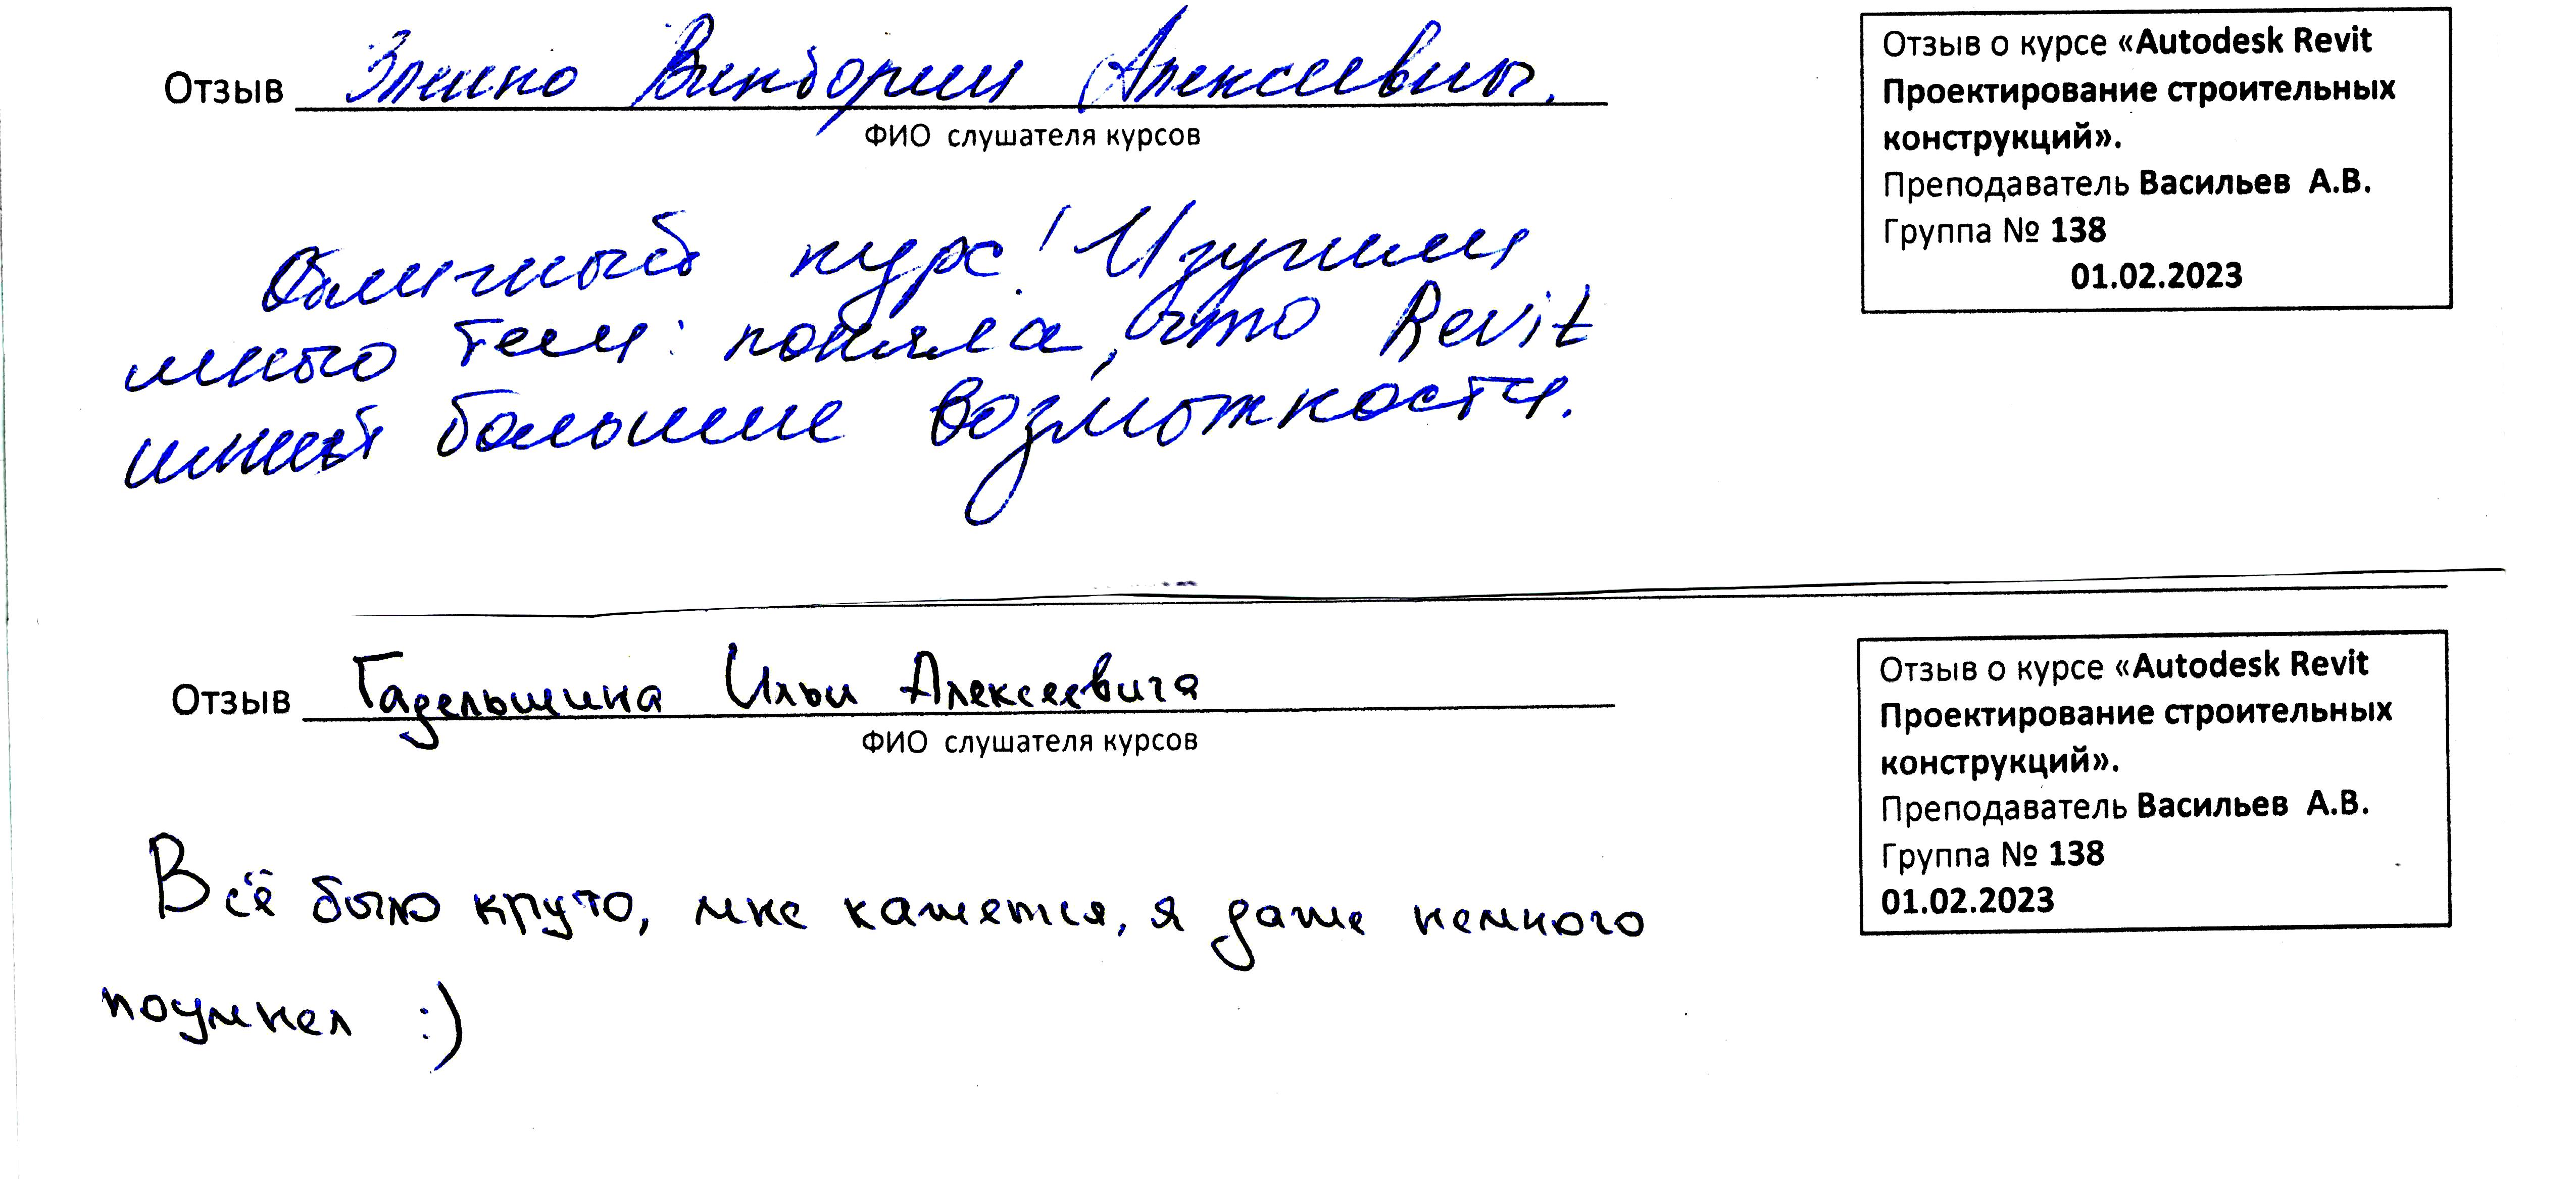 Отзыв Виктории Алексеевны.
ФИО слушателя курсов
Отзыв о курсе «Autodesk Revit
Проектирование строительных
конструкций».
Преподаватель Васильев А.В.
Группа № 138
01.02.2023
Отличный курс! Изучили
много тем: поняла, что Revit
имеет большие возможности.
Отзыв Гадельшина Ильи Алексеевича
ФИО слушателя курсов
Отзыв о курсе «Autodesk Revit
Проектирование строительных
конструкций».
Преподаватель Васильев А.В.
Группа № 138
01.02.2023
Всё было круто, мне кажется, я даже немного
поумнел :)